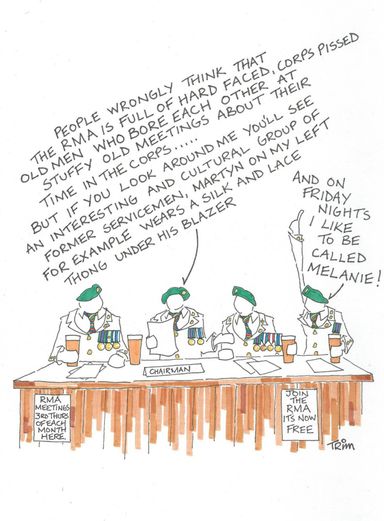 PEOPLE WRONGLY THINK THAT
THE RMA IS FULL OF HARD FACED, CORPS PISSED
OLD MEN WHO BORE EACH OTHER AT
STUFFY OLD MEETINGS ABOUT THEIR
TIME IN THE CORPS......
BUT IF YOU LOOK AROUND ME YOU'LL SEE
AN INTERESTING AND CULTURAL GROUP OF
FORMER SERVICEMEN, MARTYN ON MY LEFT
FOR EXAMPLE WEARS A SILK AND LACE
THONG UNDER HIS BLAZER
AND ON
FRIDAY
NIGHTS
I LIKE
TO BE
CALLED
MELANIE!
CHAIRMAN
RMA
MEETINGS
3RD THURS
OF EACH
MONTH
HERE.
JOIN
THE
RMA
ITS NOW
FREE
TRIM